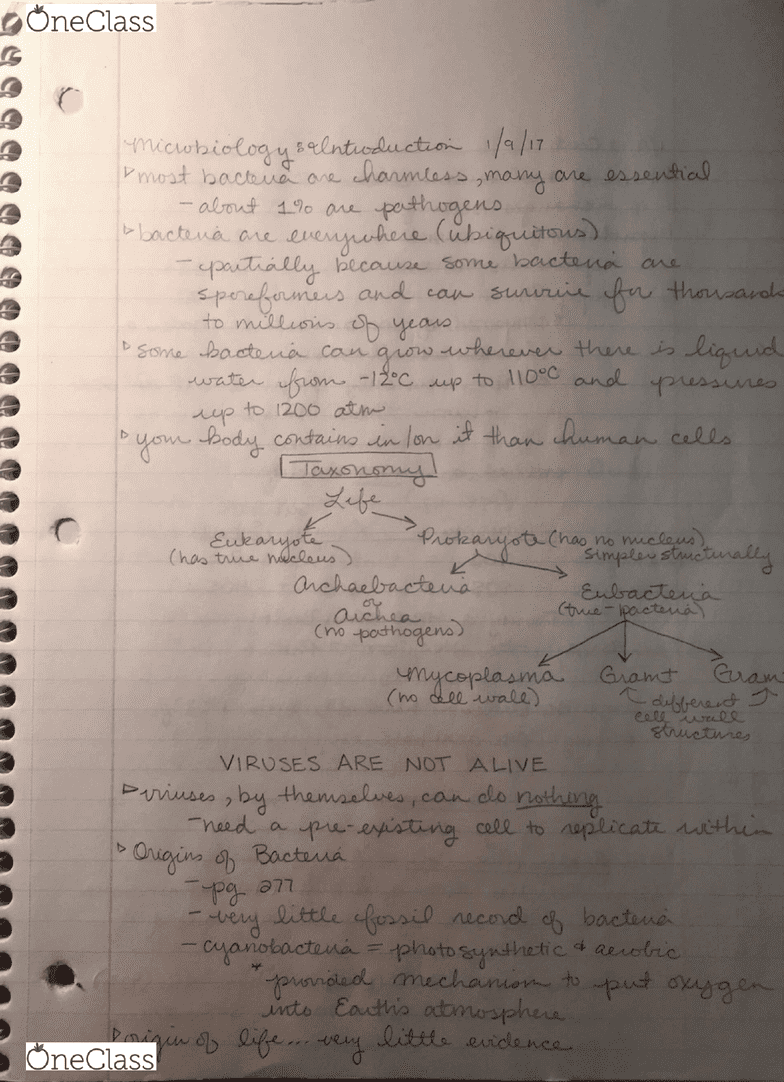 OneClass
Microbiology: Introduction 1/9/17
▹ most bacteria are harmless, many are essential
- about 1% are pathogens
▹ bacteria are everywhere (ubiquitous)
- partially because some bacteria are
sporeformers and can survive for thousands
to millions of years
▹ some bacteria can grow wherever there is liquid
water from -12°C up to 110°C and pressures
up to 1200 atm
▹ your body contains in/on it than human cells
Taxonomy
Life
Eukaryote Prokaryote (has no nucleus)
(has true nucleus) simpler structurally
Archaebacteria Eubacteria
or (true-bacteria)
Archea
(no pathogens)
Mycoplasma Gram+ Gram
(no cell wall) different
cell wall
structures
VIRUSES ARE NOT ALIVE
▹ viruses, by themselves, can do nothing
- need a pre-existing cell to replicate within
▹ Origins of Bacteria
- pg 277
- very little fossil record of bacteria
- cyanobacteria = photosynthetic & aerobic
* provided mechanism to put oxygen
into Earth's atmosphere
▹ origin of life... very little evidence
OneClass